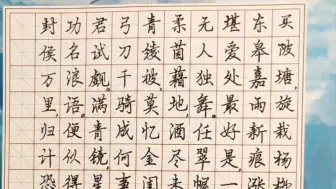 买陂塘,旋栽杨柳
东皋嘉雨新痕涨
堪爱处最好是,
无人独舞。任翠幄
柔茵藉地,酒尽未
青绫被,莫忆金闺
弓刀千骑成何事
君试觑。满青镜星
功名浪语。便似得
封侯万里,归计恐